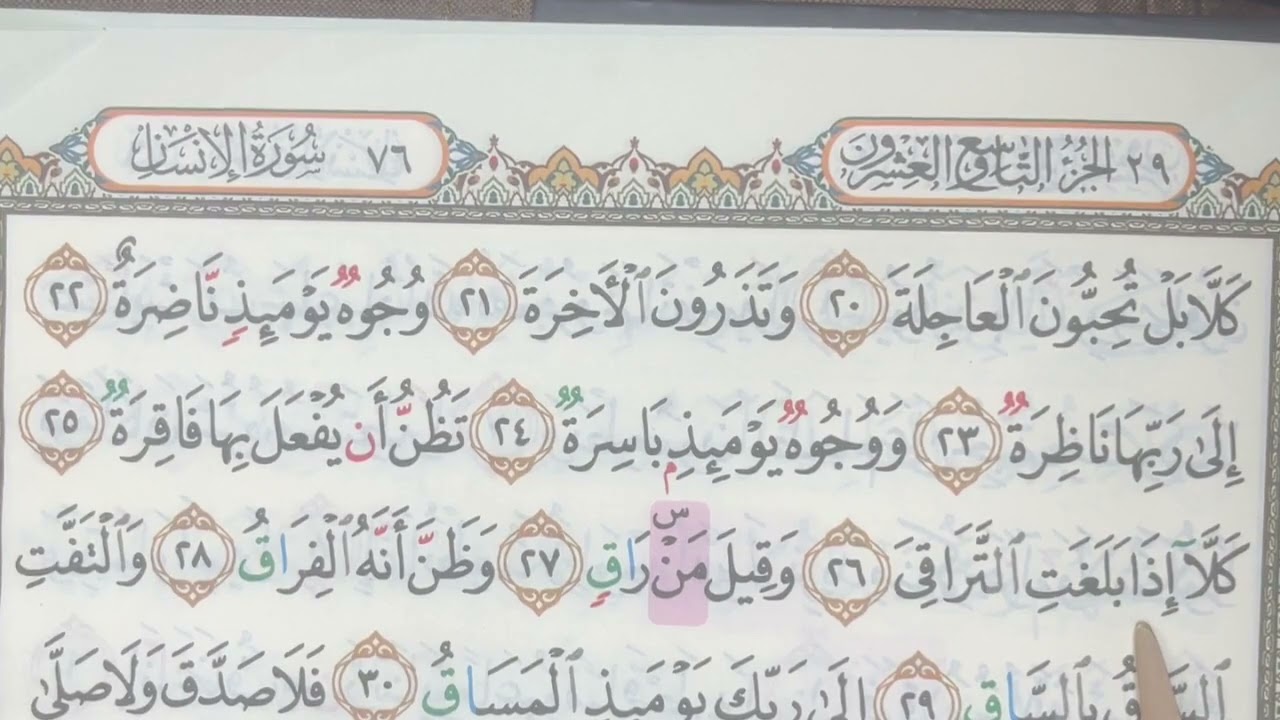 ٢٩ الجزء التاسع العشرون
٧٦ سورة الإنسان
كَلَّا بَلْ تُحِبُّونَ ٱلْعَاجِلَةَ ٢٠ وَتَذَرُونَ ٱلْأَخِرَةَ ٢١ وُجُوهٌ يَوْمَئِذٍ نَّاضِرَةٌ ٢٢
إِلَىٰ رَبِّهَا نَاظِرَةٌ ٢٣ وَوُجُوهٌ يَوْمَئِذٍۭ بَاسِرَةٌ ٢٤ تَظُنُّ أَن يُفْعَلَ بِهَا فَاقِرَةٌ ٢٥
كَلَّآ إِذَا بَلَغَتِ ٱلتَّرَاقِىَ ٢٦ وَقِيلَ مَنْۜ رَاقٍ ٢٧ وَظَنَّ أَنَّهُ ٱلْفِرَاقُ ٢٨ وَٱلْتَفَّتِ
ٱلسَّاقُ بِٱلسَّاقِ ٢٩ إِلَىٰ رَبِّكَ يَوْمَئِذٍ ٱلْمَسَاقُ ٣٠ فَلَا صَدَّقَ وَلَا صَلَّىٰ